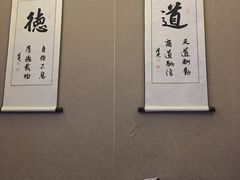 道
天道酬勤
商道酬信
德
自强不息
厚德載物